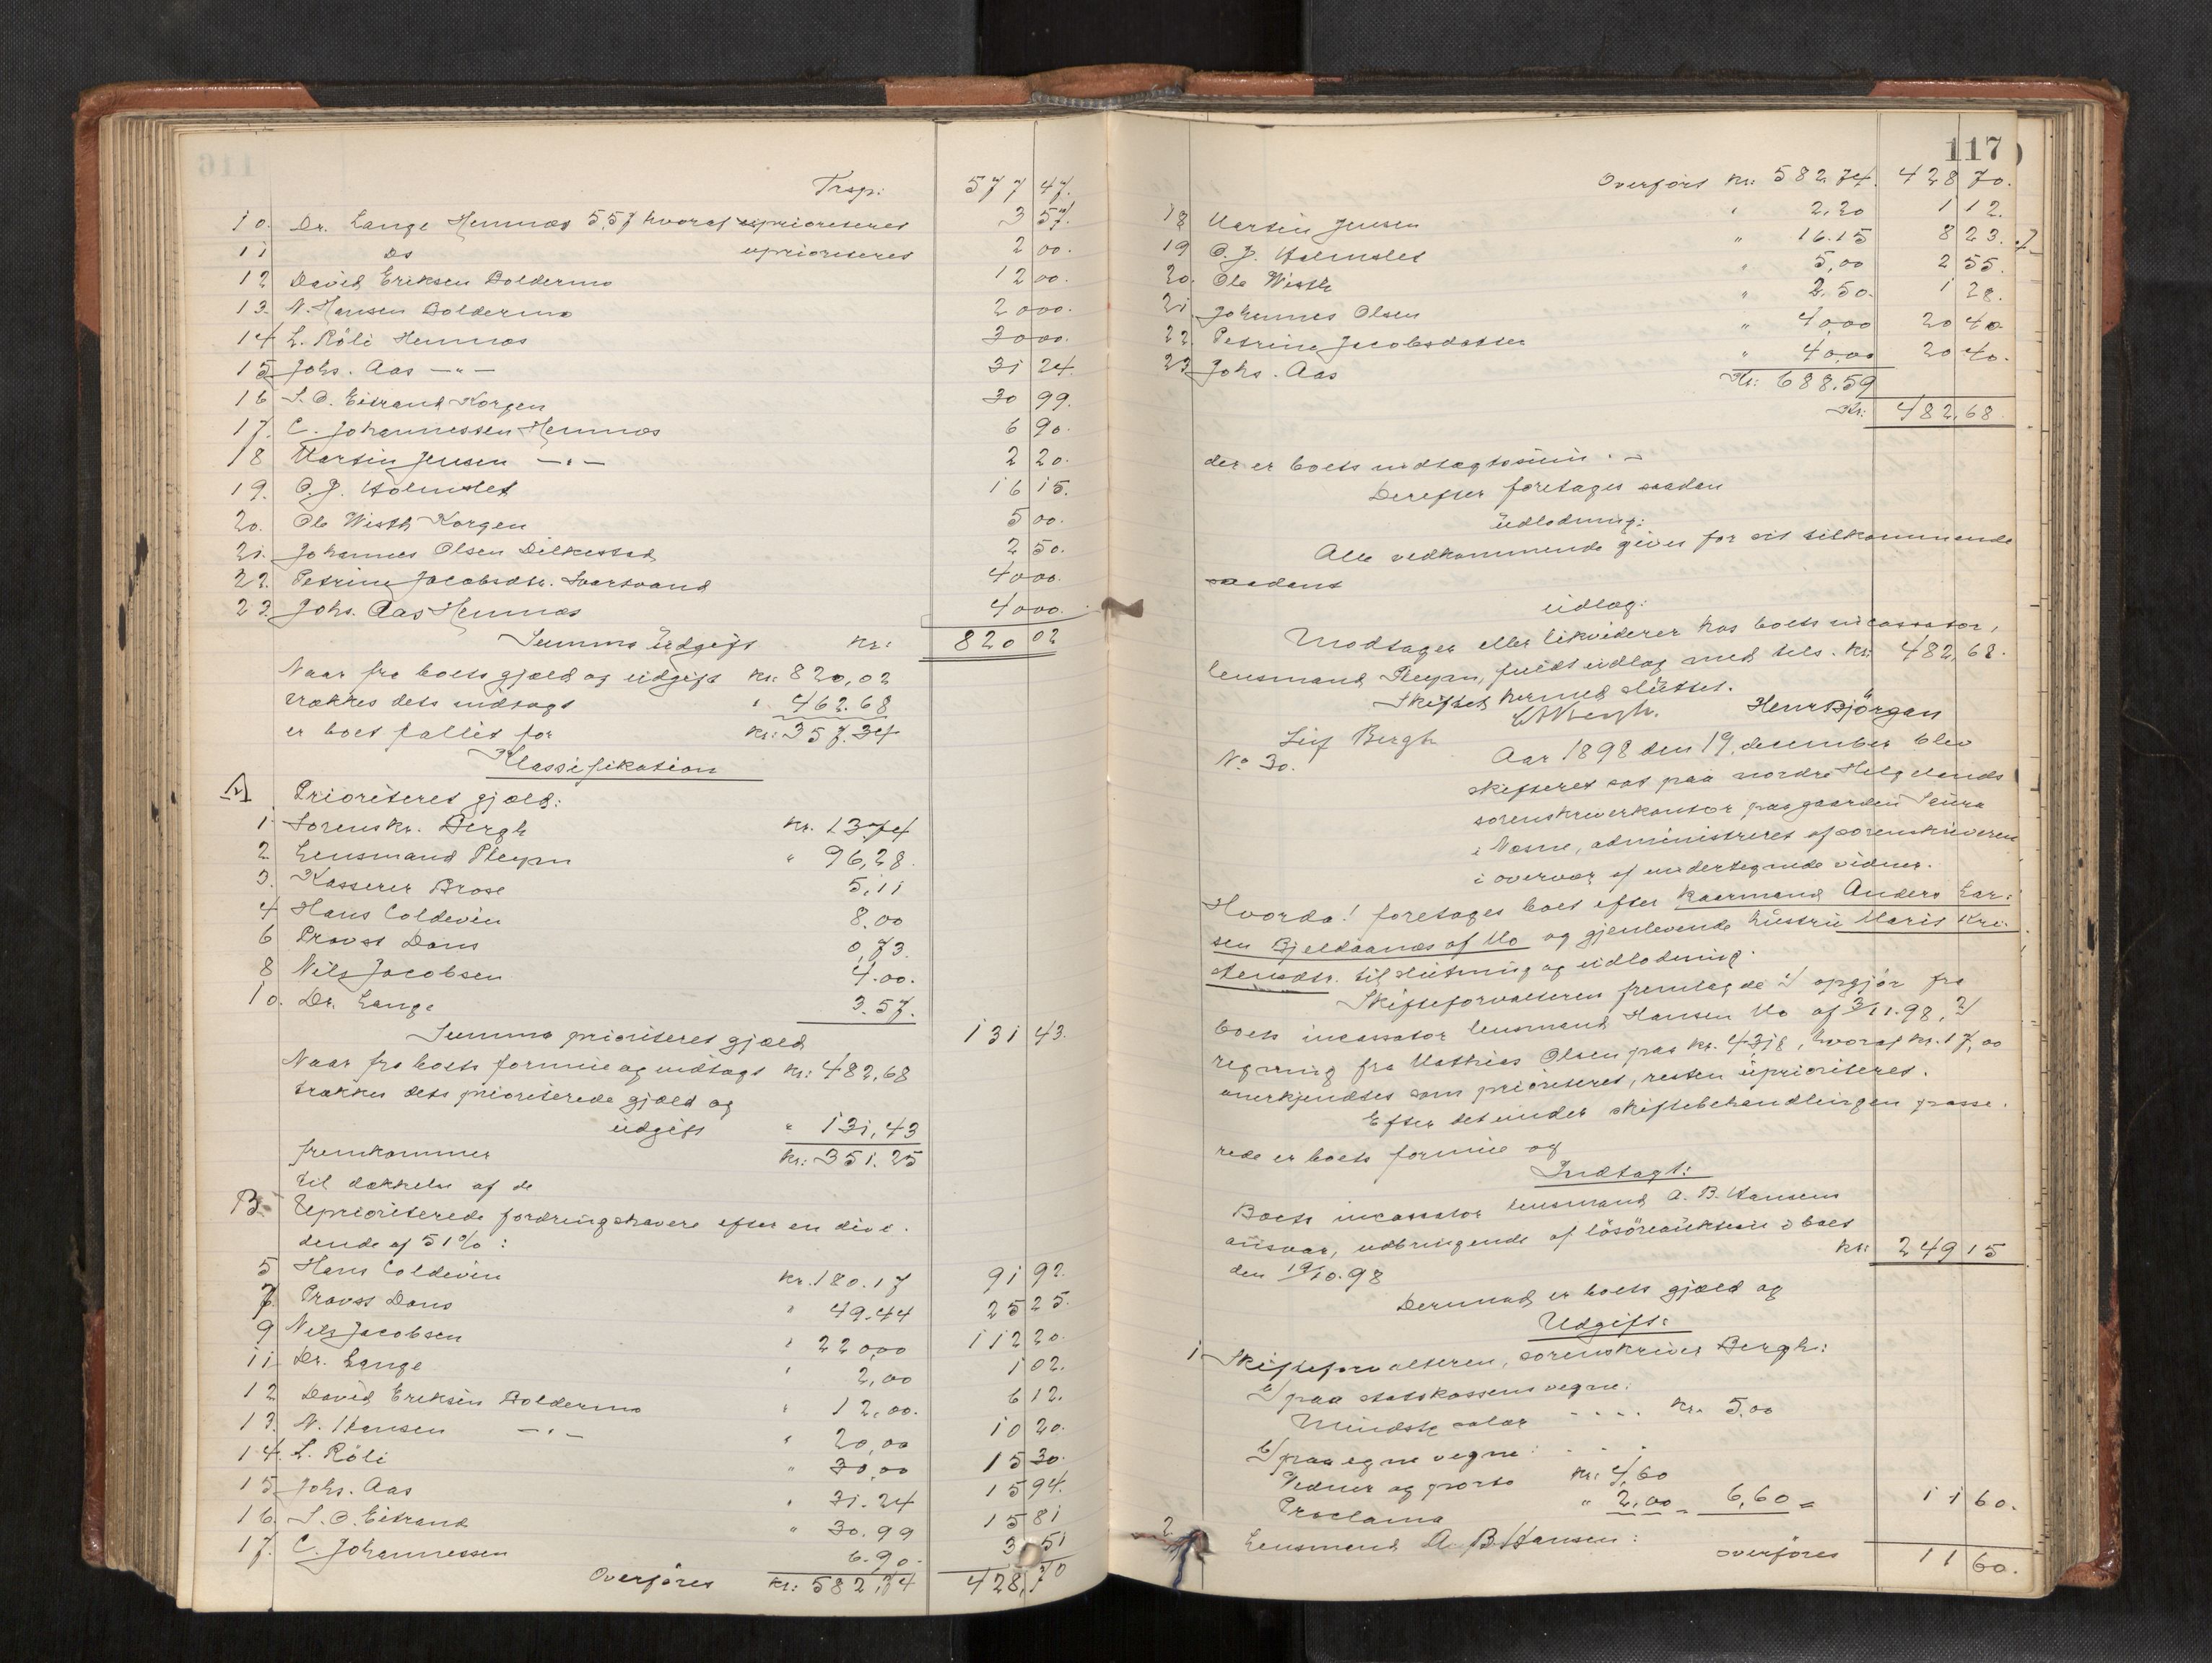 Trsp: 577 47.
10. Dr. Lange Hemnæs 5,57 hvoraf prioriteret 3 57.
11 Do uprioriteret 2 00.
12 David Eriksen Boldermo 12 00.
13. N. Hansen Boldermo 20 00.
14 L. Röli Hemnæs 30 00.
15 Johs. Aas —"— 31 24
16 S. O. Eitrand Korgen 30 99.
17. C. Johannessen Hemnæs 6 90.
18 Martin Jensen —"— 2 20.
19. O. J. Holmslet 16 15.
20. Ole Wisth Korgen 5 00.
21. Johannes Olsen Dilkestad 2 50.
22. Petrine Jacobsdtr. Svartvand 40 00.
23. Johs. Aas Hemnæs 40 00.
Summa Udgift kr: 820 02
Naar fra boets gjæld og udgift kr: 820,02
trækkes dets indtægt " 462.68
er boet fallit for kr: 357.34
Klassifikation
A Prioriteret gjæld:
1 Sorenskr. Bergh kr. 13.74
2 Lensmand Pleym " 96,28.
3. Kasserer Brose 5,11
4 Hans Coldevin 8.00
6 Provst Dons 0,73.
8 Nils Jacobsen 4.00.
10. Dr. Lange 3.57.
Summa prioriteret gjæld 131 43.
Naar fra boets formue og indtægt kr: 482,68
trækkes dets prioriterede gjæld og
udgift " 131,43
fremkommer kr: 351.25
til dækkelse af de
B. Uprioriterede fordringshavere efter en divi-
dende af 51%:
5 Hans Coldevin kr. 180.17 91 92.
7. Provst Dons " 49.44 25 25.
9 Nils Jacobsen " 220,00 112 20.
11 Dr. Lange " 2,00 1 02.
12 David Eriksen Boldermo " 12,00. 6 12.
13. N. Hansen —"— " 20,00 10 20.
14. L. Röli " 30,00 15 30.
15 Johs. Aas " 31.24 15 94.
16. S. O. Eitrand " 30.99 15 81
17. C. Johannessen 6.90. 3 51
Overføres kr: 582,74 428,70
117
Overført kr: 582.74. 428 70.
18 Martin Jensen " 2,20 1 12.
19 O. J. Holmslet " 16.15 8 23.
20. Ole Wisth " 5,00 2 55.
21. Johannes Olsen " 2,50. 1 28.
22. Petrine Jacobsdatter " 40,00 20 40
23 Johs. Aas " 40,00 20 40.
Kr: 688,59
Kr: 482,68.
der er boets indtægtssum. —
Derefter foretages saadan
Udlodning:
Alle vedkommende gives for sit tilkommende
saadant
udlæg:
Modtager eller likviderer hos boets incassator,
lensmand Pleym, fuldt udlæg med tils. kr: 482,68.
Skiftet hermed sluttet.
Henr Björgan
Leif Bergh
No 30. Aar 1898 den 19. december blev
skifteret sat paa nordre Helgelands
sorenskriverkontor paa gaarden Skura
i Nesne, administreret af sorenskriveren
i overvær af undertegnede vidner.
Hvorda! foretages boet efter kaarmand Anders Lar-
sen Bjeldaanæs af Mo og gjenlevende hustru Marit Kri-
stensdtr. til slutning og udlodning.
Skifteforvalteren fremlagde 1/ opgjör fra
boets incassator lensmand Hansen Mo af 3/11.98, 2/
regning fra Mathias Olsen paa kr. 43,18, hvoraf kr. 17,00
anerkjendtes som prioriteret, resten uprioriteret.
Efter det under skiftebehandlingen passe-
rede er boets formue og
Indtægt:
Boets incassator lensmand A. B. Hansens
ansvar, udbringende af lösöreauktion i boet
den 19/10.98 kr: 249 15
Dermod er boets gjæld og
Udgift:
1 Skifteforvalteren, sorenskriver Bergh:
a/ paa statskassens vegne:
Mindste salær - - - - kr. 5,00
b/ paa egne vegne: - - -
Vidner og porto kr: 4,60
Proclama " 2,00 = 6,60 = 11 60.
2 Lensmand A. B. Hansen:
overføres 11 60.